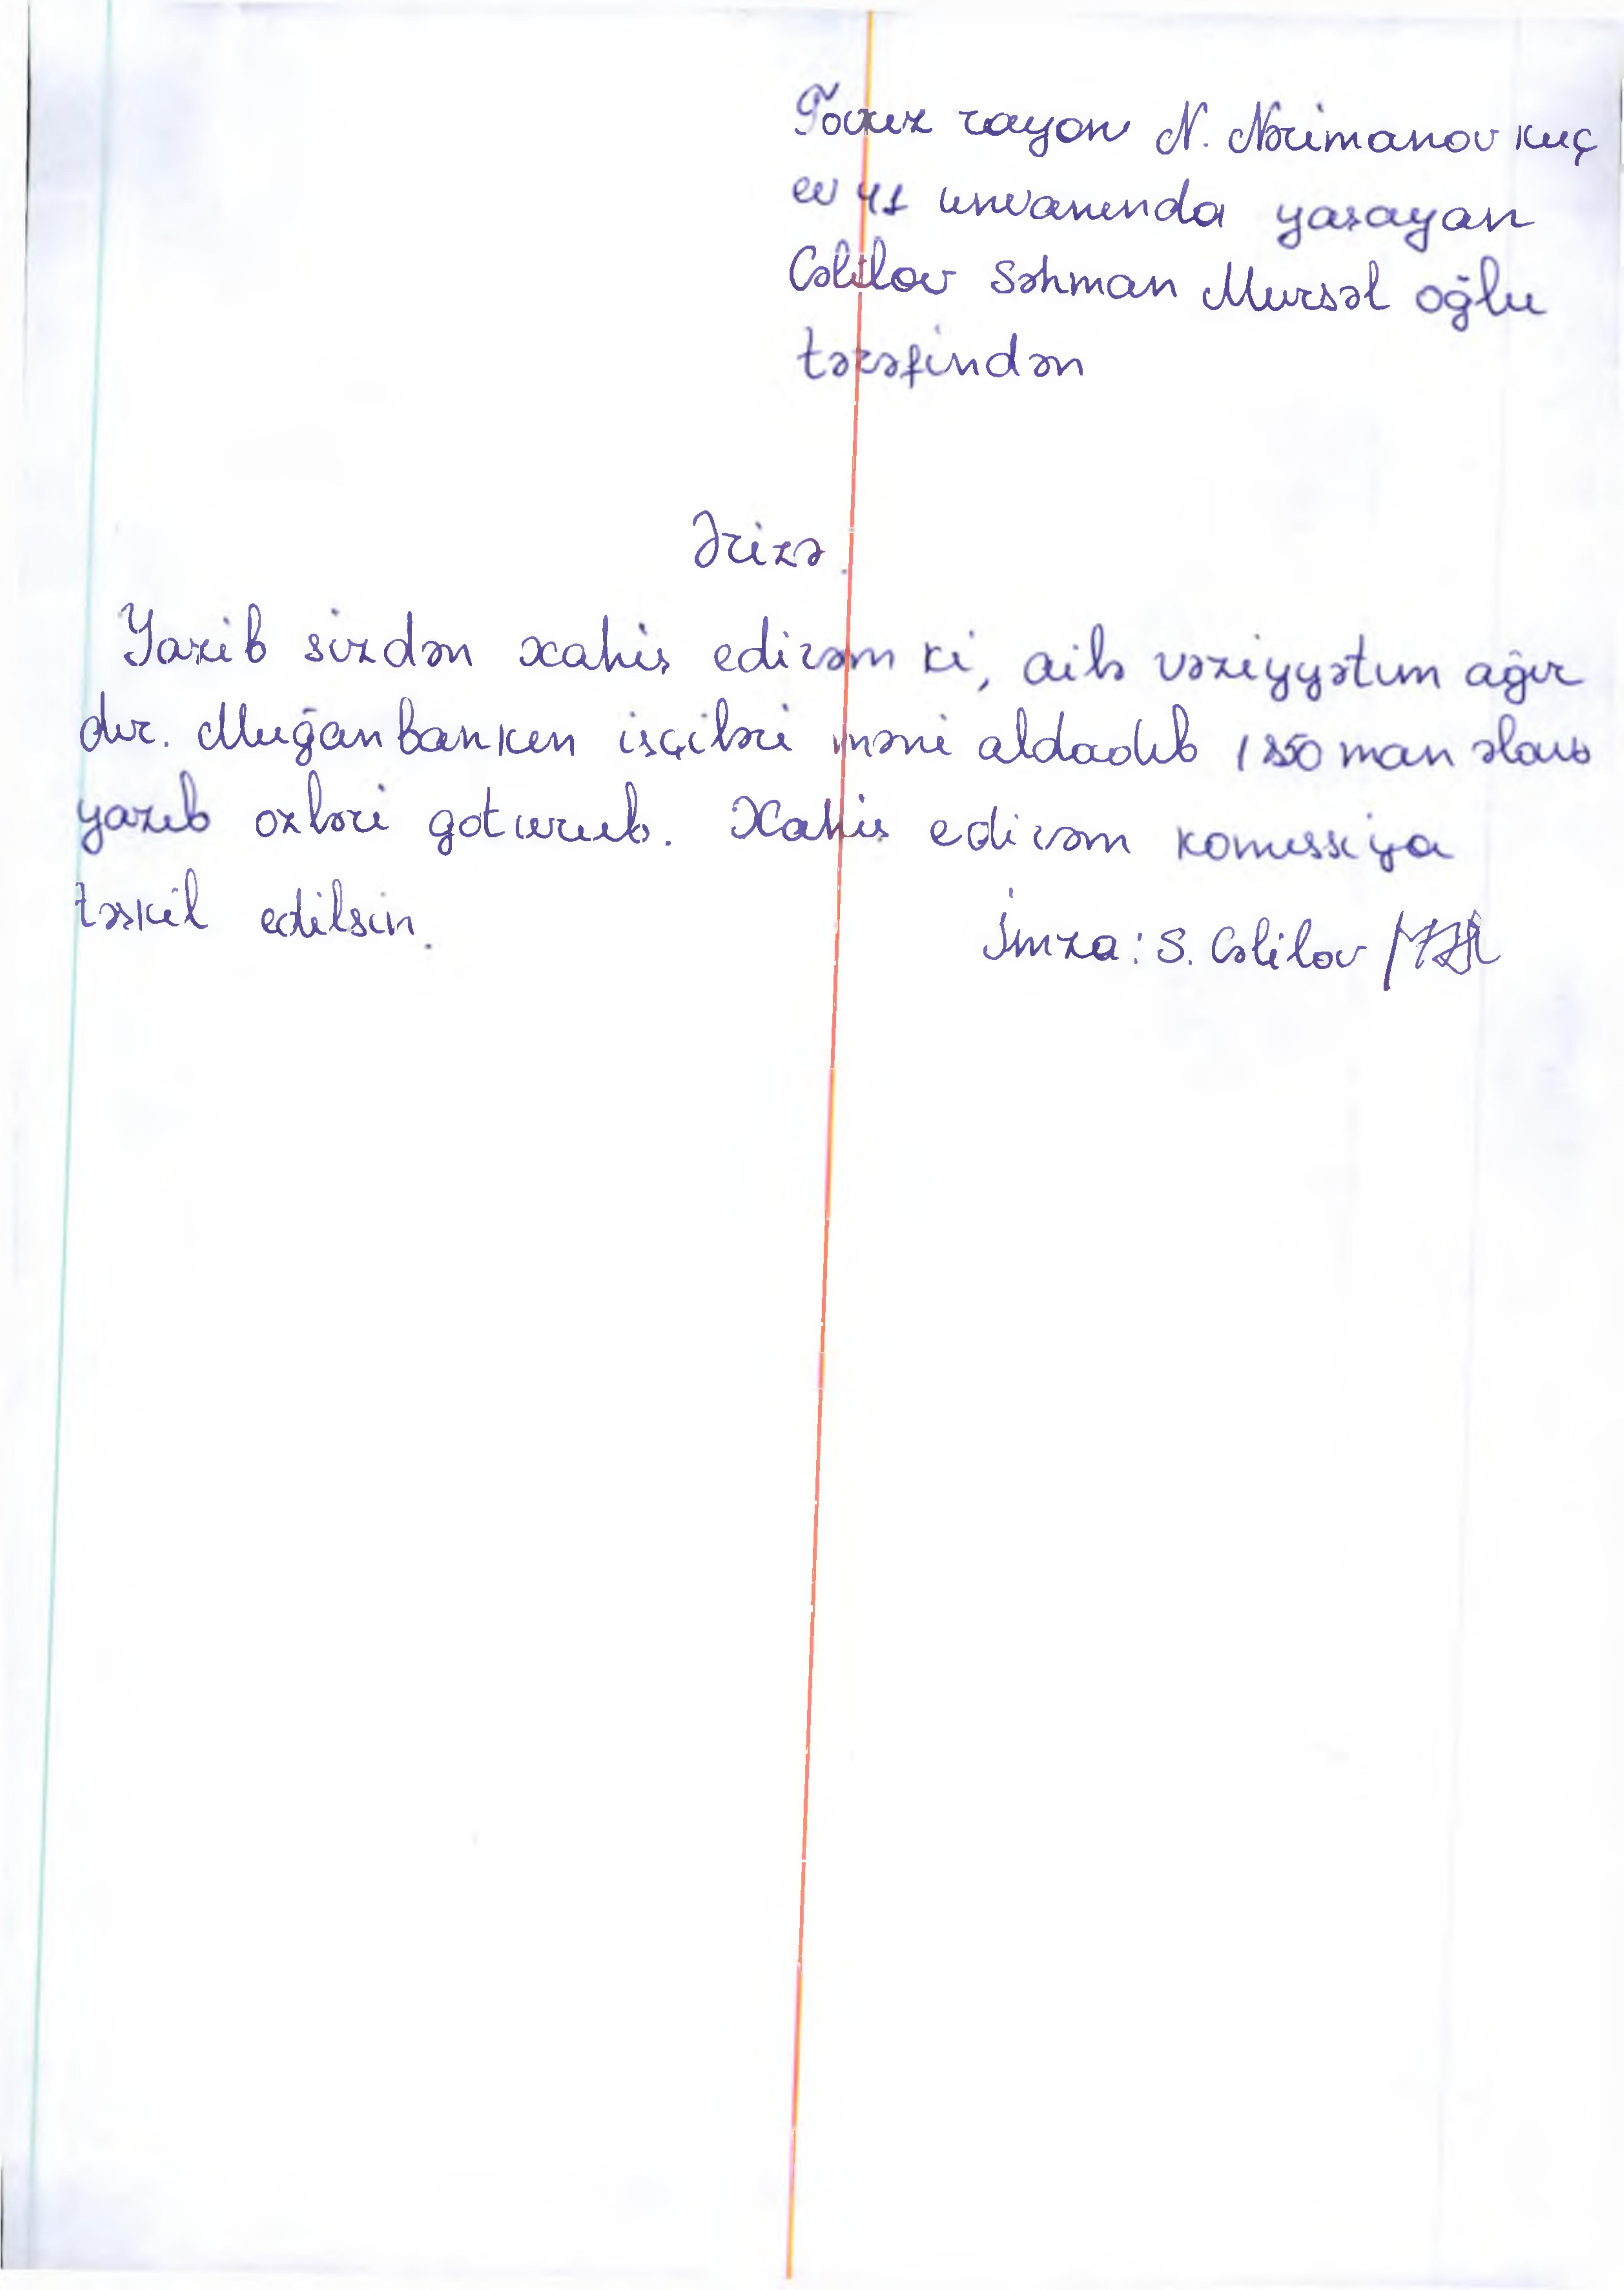 Tovuz rayon N. Nərimanov kuç
ev 41 unvanında yaşayan
Cəlilov Səhman Mursəl oğlu
tərəfindən
Ərizə.
Yazıb sizdən xahiş edirəm ki, ailə vəziyyətim ağır
dır. Muğanbankın işçiləri məni aldadıb 1850 man əlavə
yazıb ozləri goturub. Xahiş edirəm komissiya
təşkil edilsin.
İmza: S. Cəlilov